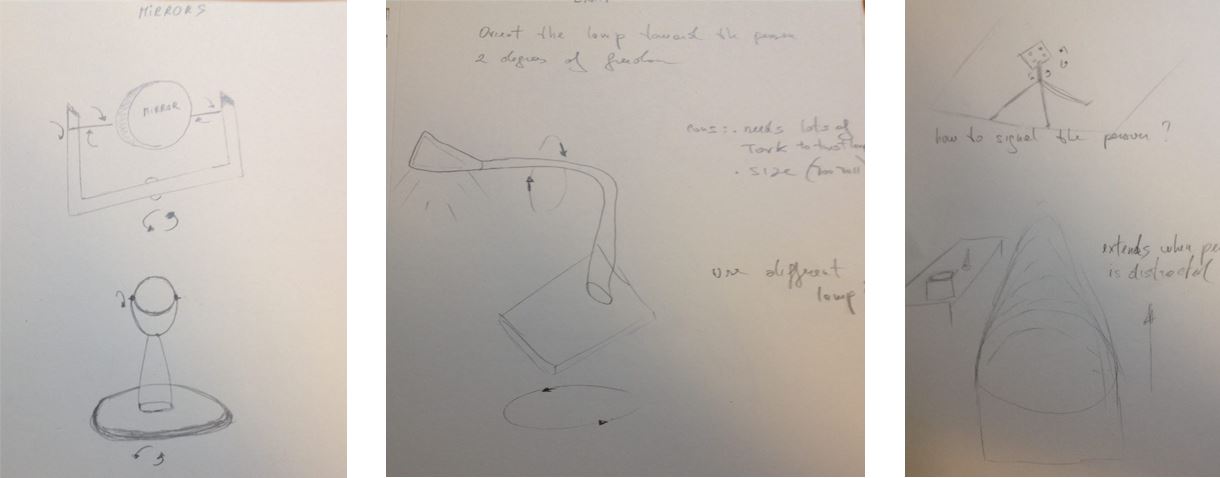 MIRRORS
MIRROR
Orient the lamp toward the person
2 degrees of freedom
cons: . needs lots of
Tork to
. size (too
Use different
lamp ?
how to signal the person ?
extends when pe
is distracted